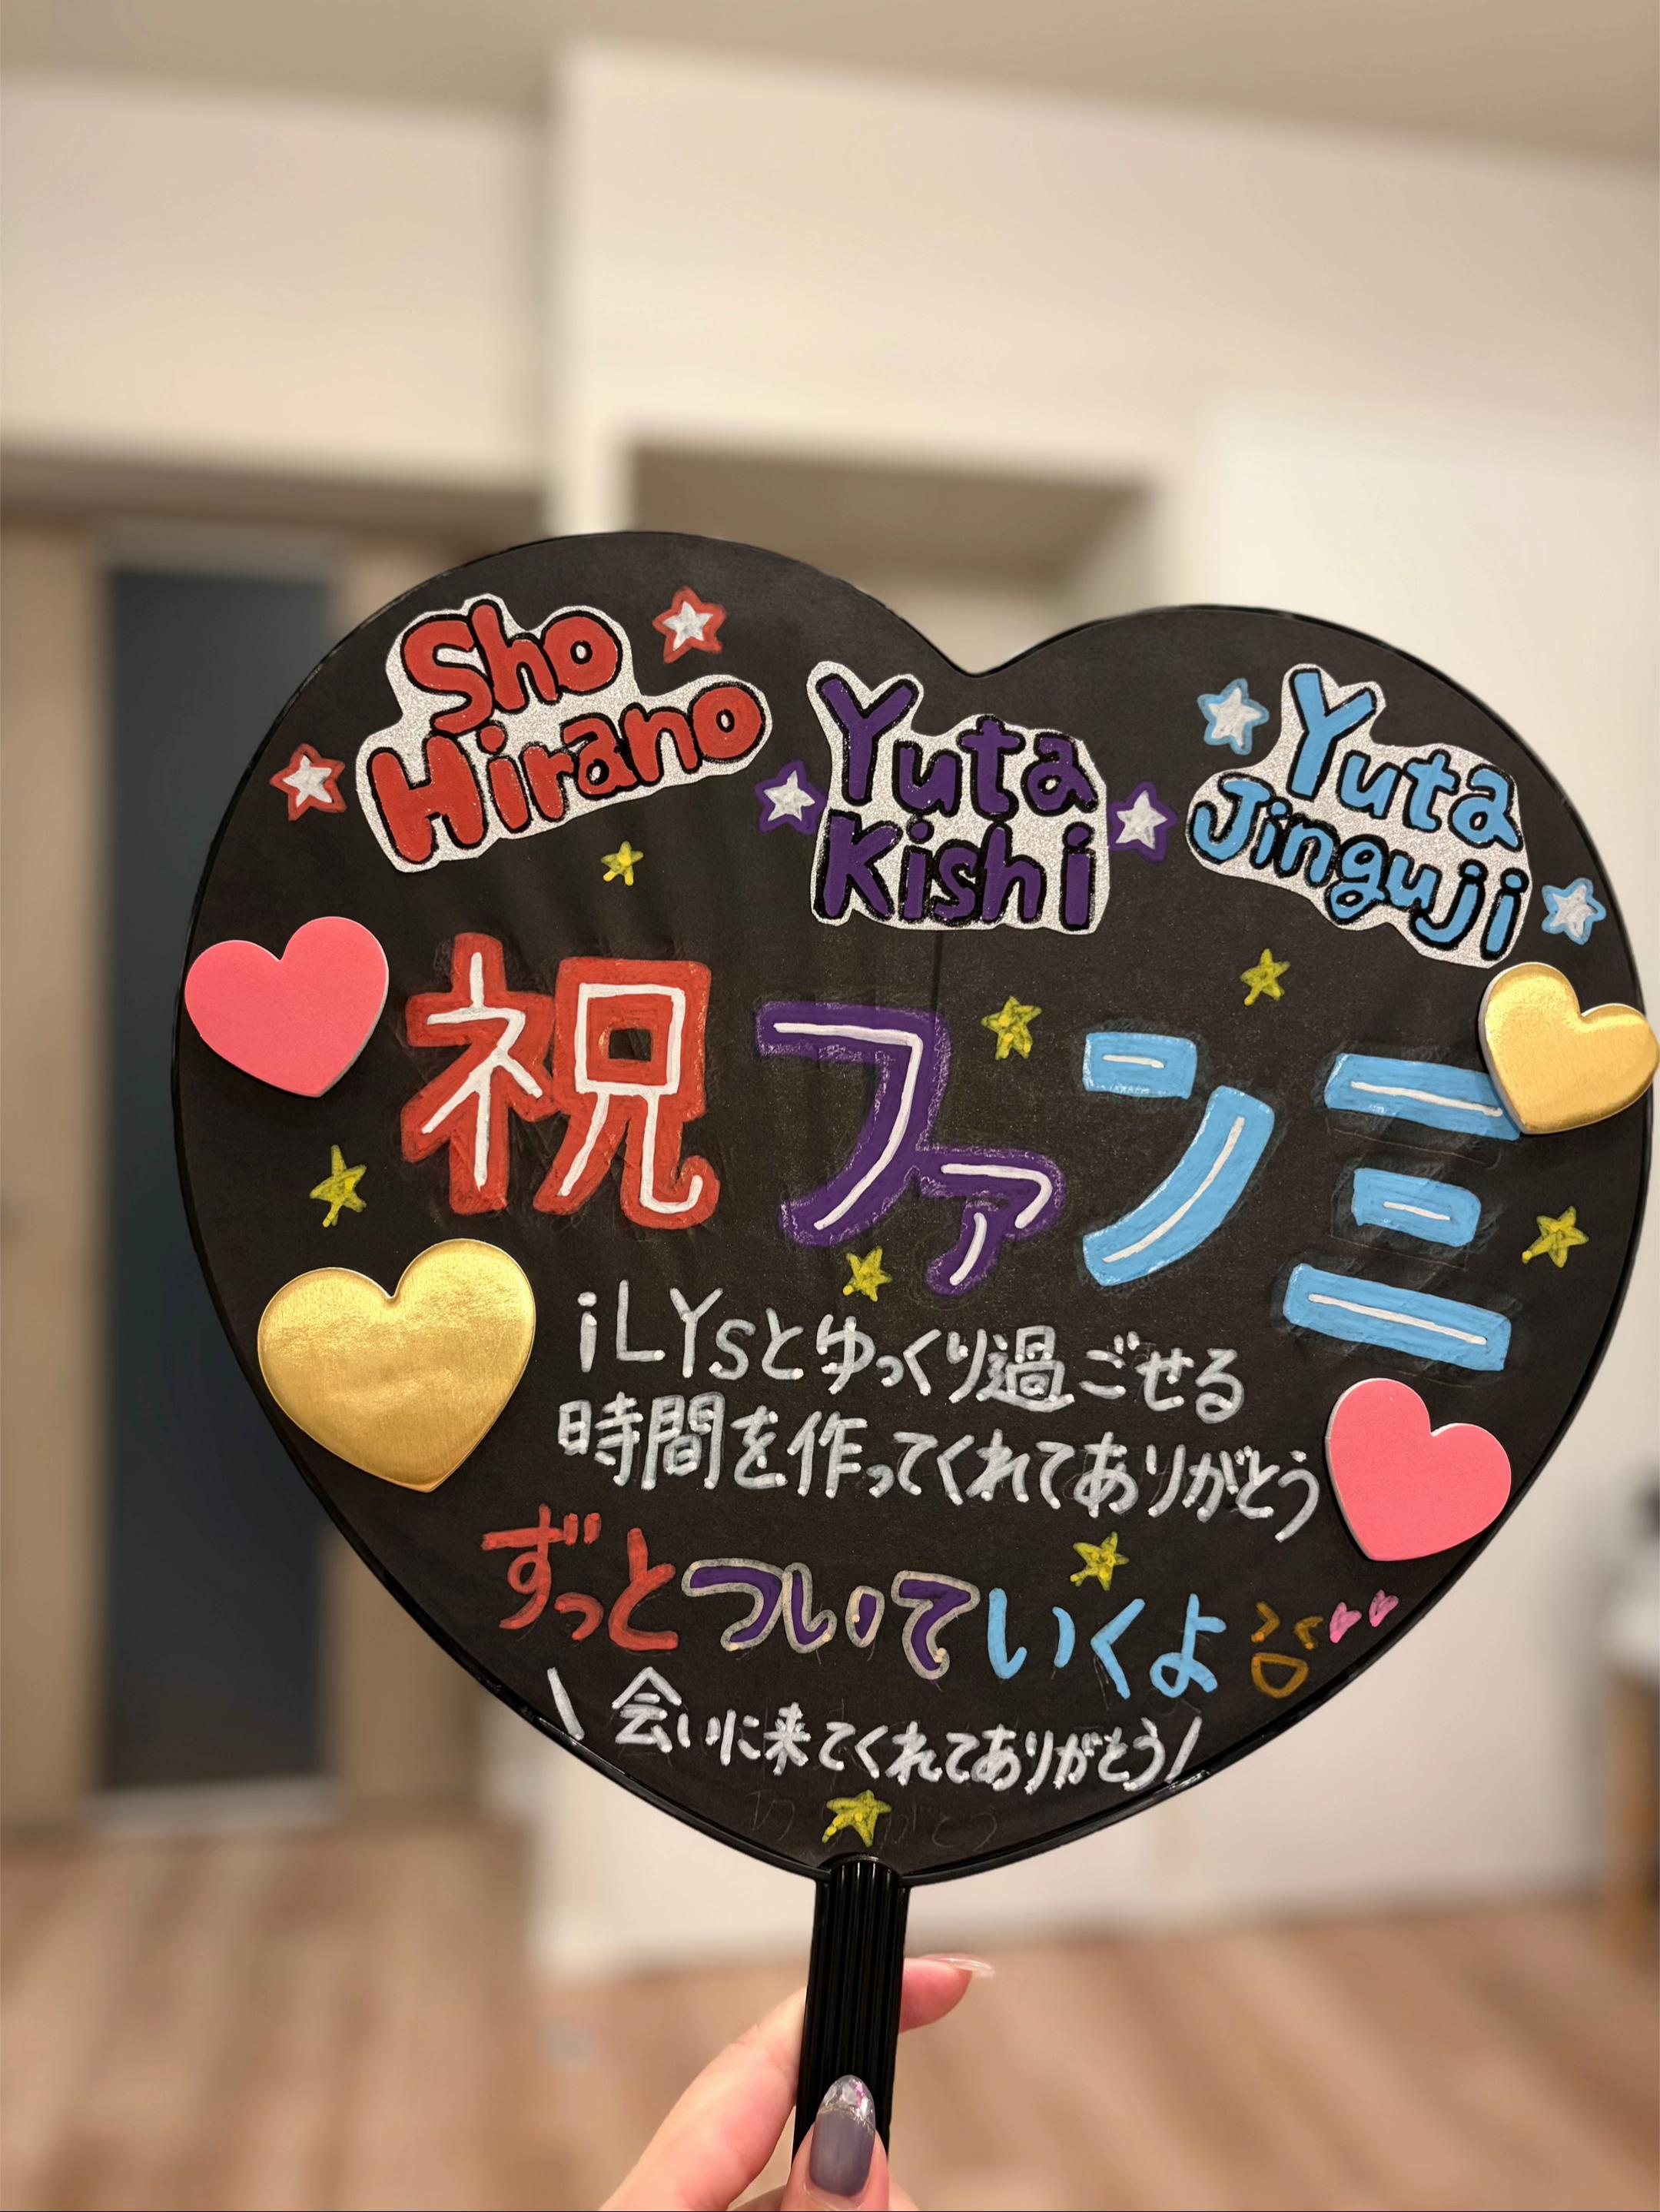 Sho
Hirano
Yuta
Kishi
Yuta
Jinguji
祝ファンミ
iLYsとゆっくり過ごせる
時間を作ってくれてありがとう
ずっとついていくよ
\ 会いに来てくれてありがとう /